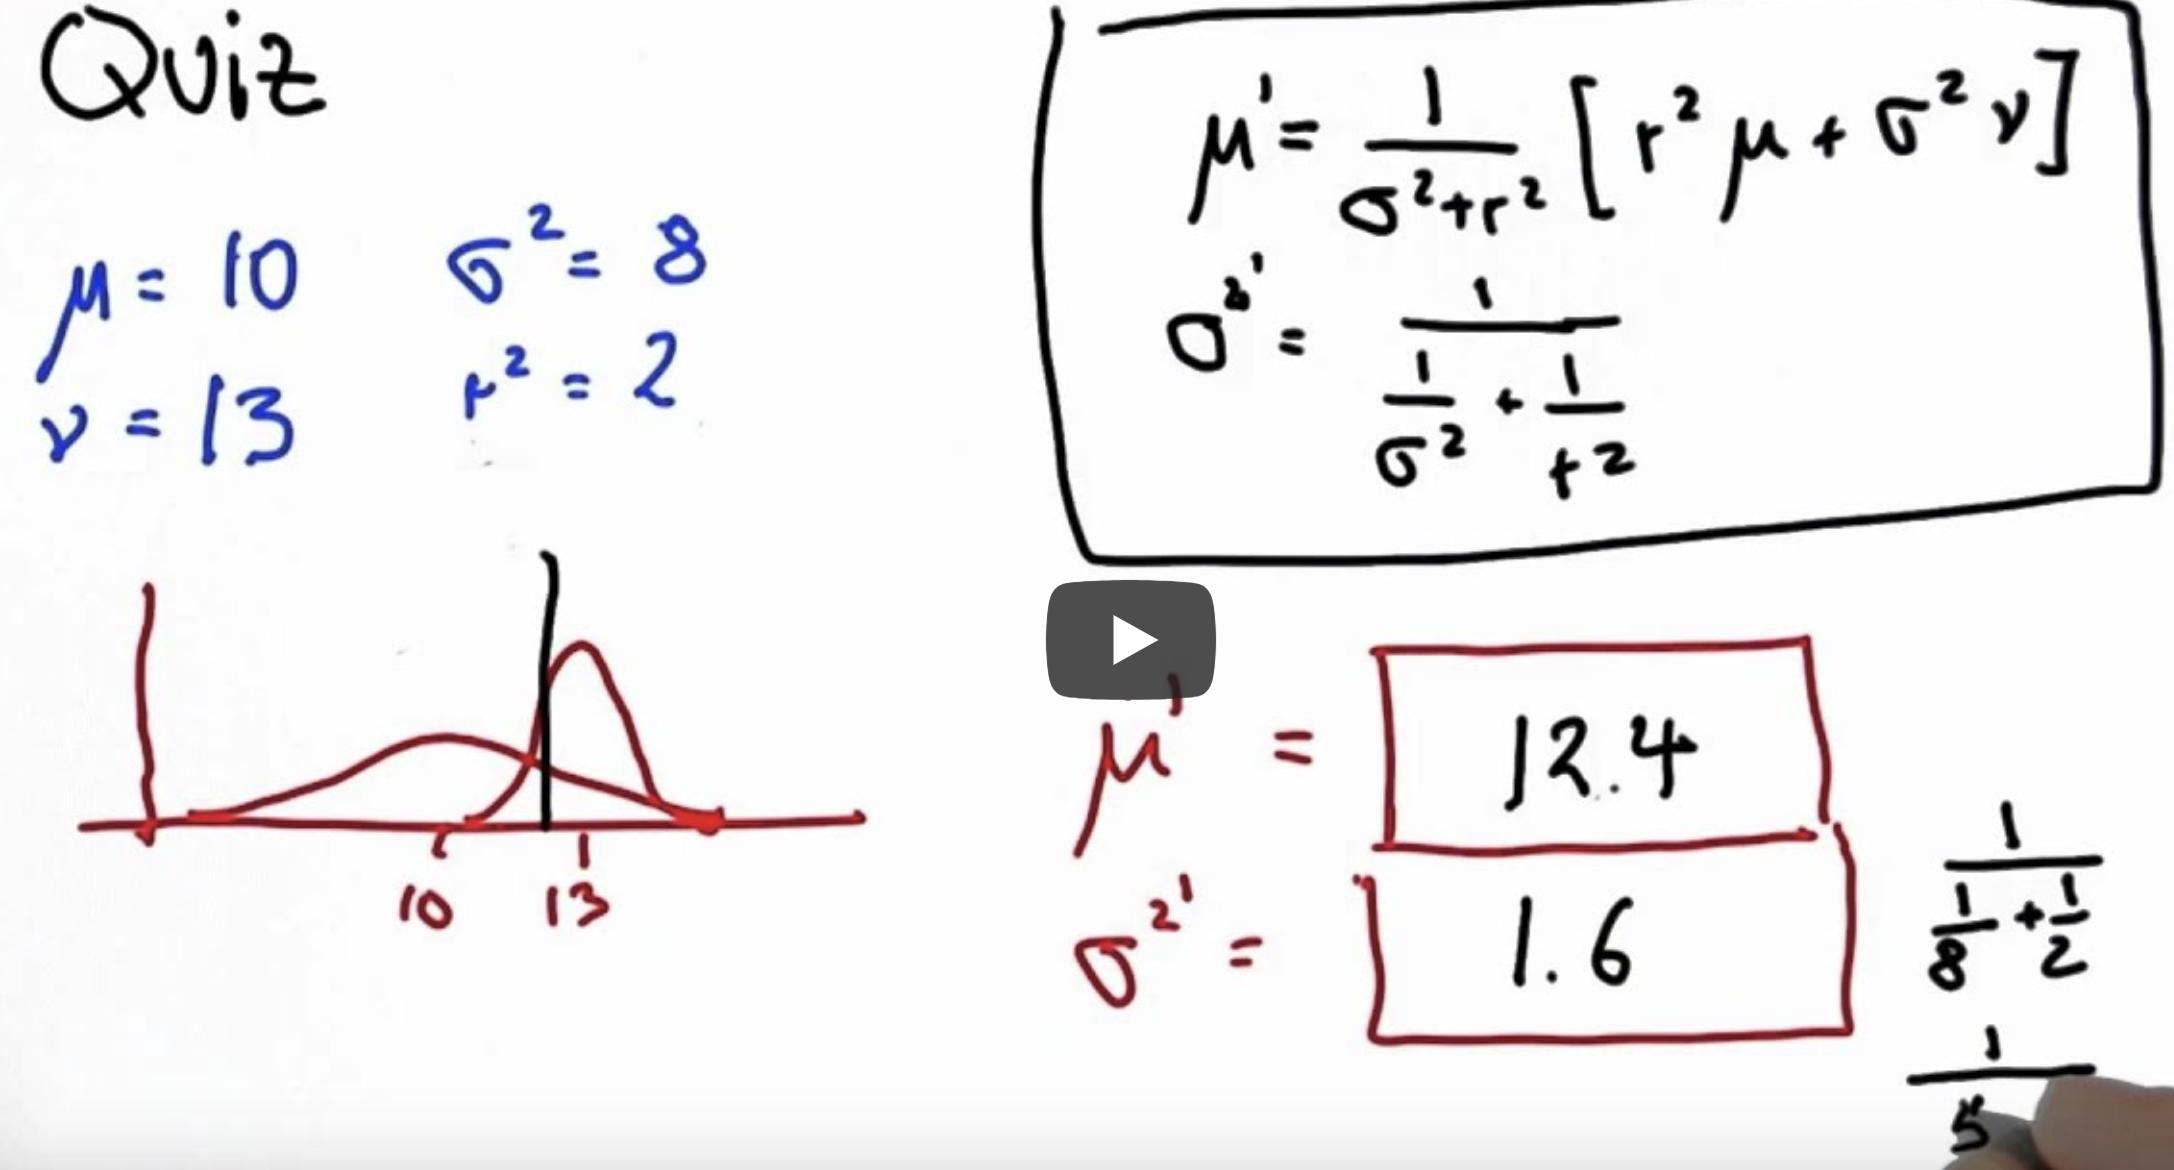 Quiz
μ = 10 σ² = 8
ν = 13 r² = 2
μ' = 1/(σ²+r²) [r² μ + σ² ν]
σ²' = 1/(1/σ² + 1/r²)
10 13
μ' = 12.4
σ²' = 1.6
1/(1/8 + 1/2)
1/5